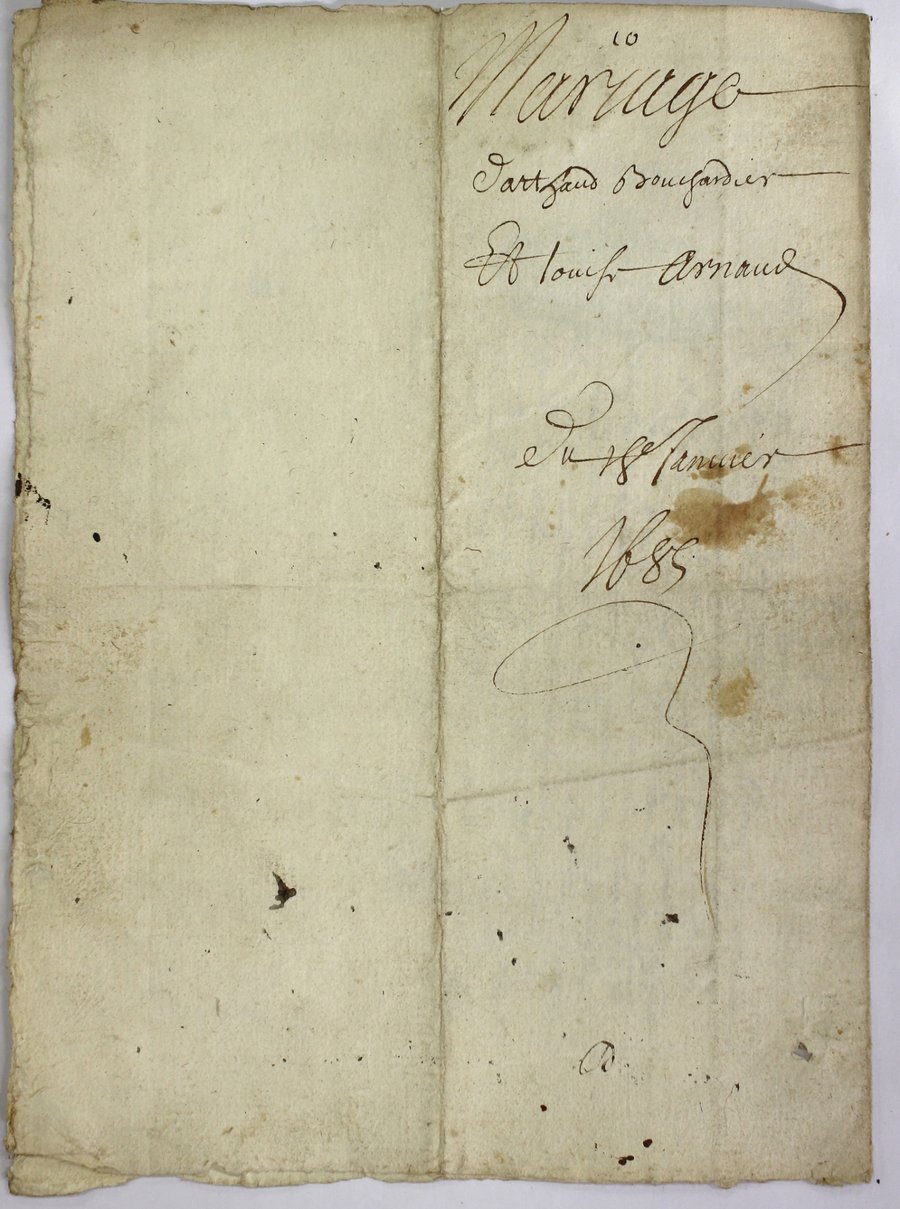 10
Mariage
Darthaud Bouchardier
Et louise Arnaud
Du 18e Januier
1685